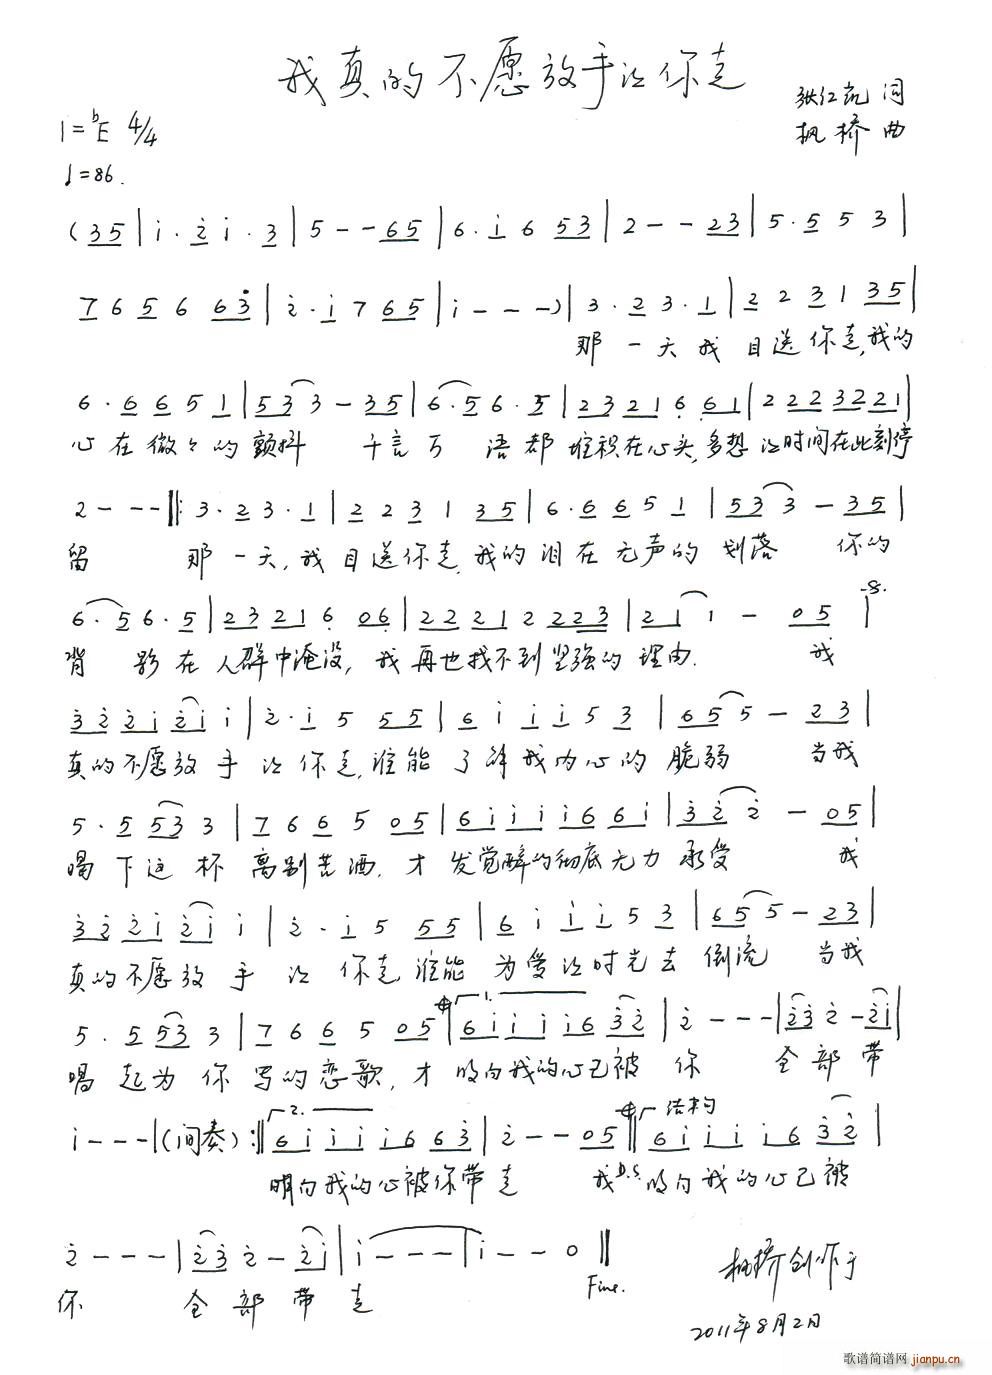 我真的不愿放手让你走
张红凯 词
1=♭E 4/4
枫桥 曲
♩=86.
(35|i·2i·3|5--65|6·i653|2--23|5·553|
765663|2·i765|i---)|3·23·1|223135|
那一天我目送你走,我的
6·6651|533-35|6·56·5|2321661|2223221|
心在微々的颤抖 千言万语都堆积在心头,多想让时间在此刻停
2---‖:3·23·1|223135|6·6651|533-35|
留 那一天,我目送你走,我的泪在无声的划落 你的
6·56·5|2321606|222122223|211-05|
背影在人群中淹没,我再也找不到坚强的理由. 我
322i2ii|2·i555|6iii53|655-23|
真的不愿放手让你走,谁能了解我内心的脆弱 当我
5·5533|766505|6iiii66i|322-05|
喝下这杯离别苦酒,才发觉醉的彻底无力承受 我
322i2ii|2·i555|6iii53|655-23|
真的不愿放手让你走谁能为爱让时光去倒流 当我
5·5533|766505‖1.6iiii632|2---|232-2i|
唱起为你写的恋歌,才明白我的心已被你 全部带
i---|(间奏):‖2.6iiii663|2--05‖结构 6iiii632|
明白我的心被你带走 我D.S.明白我的心已被
2---|232-2i|i---|i--0‖
你 全部带走
Fine.
枫桥创作于
2011年8月2日
歌谱简谱网 jianpu.cn